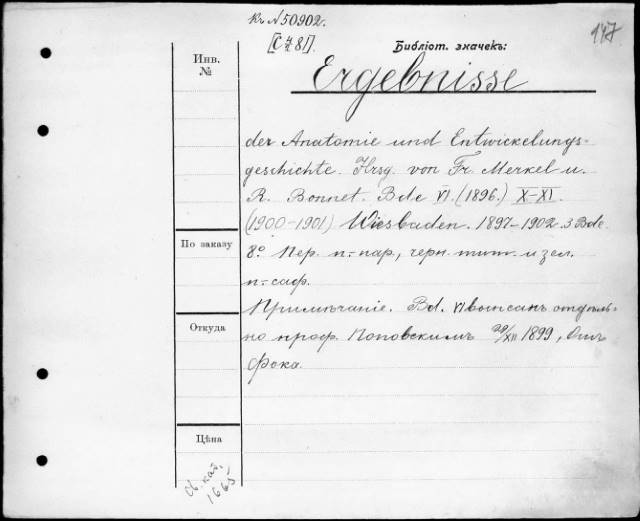 къ N 50902.
[C 4/2 81].
147
Библіот. значекъ:
Инв. №
Ergebnisse
der Anatomie und Entwickelungs-
geschichte. Hrsg. von Fr. Merkel u.
R. Bonnet. Bde VI. (1896.) X-XI.
(1900-1901) Wiesbaden. 1897-1902. 3 Bde.
По заказу
8º. Пер. п.-пар, черн. тит. и зел.
п.-саф.
Примѣчаніе. Bd. VI выписанъ отдѣль-
Откуда
но проф. Поповскимъ 29/XII 1899, Отъ
Фока.
Цѣна
Св. кат.
1665